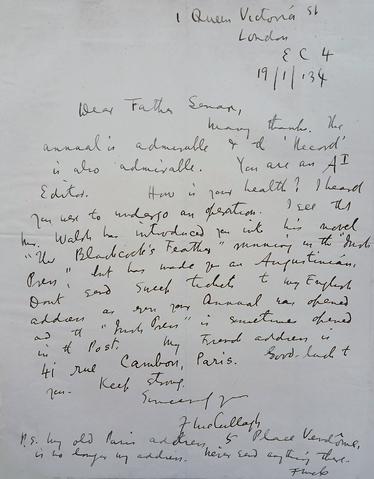 1 Queen Victoria St
London
E C 4
19/1/34
Dear Father Senan,
Many thanks. The
annual is admirable & the 'Record'
is also admirable. You are an A1
Editor. How is your health? I heard
you were to undergo an operation. I see that
Mr. Walsh has introduced you into his novel
"The Blackcock's Feather" running in the "Irish
Press", but has made you an Augustinian.
Don't send Sweep tickets to my English
address as even your Annual was opened
and the "Irish Press" is sometimes opened
in the Post. My French address is
41 rue Cambon, Paris. Good-luck to
you. Keep strong.
Sincerely yrs
F McCullagh
P.S. My old Paris address, 5 Place Vendôme,
is no longer my address. Never send anything there.
FMcC